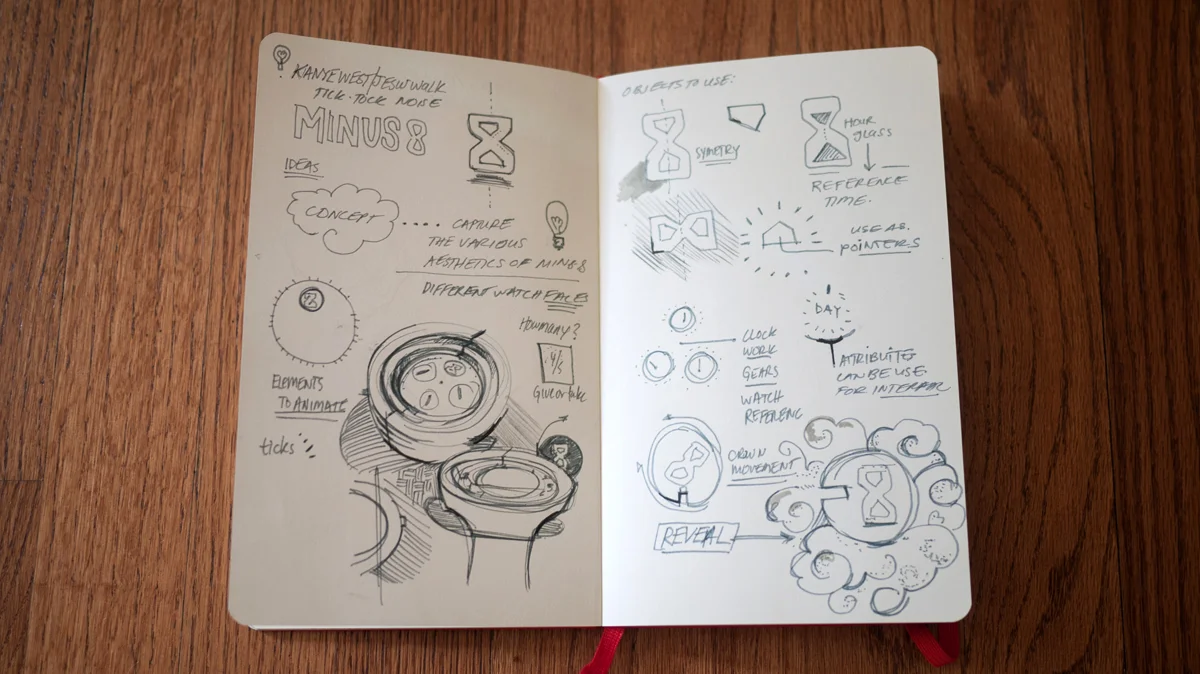 KANYE WEST/JESU WALK
TICK-TOCK NOISE
MINUS 8
IDEAS
CONCEPT
CAPTURE
THE VARIOUS
AESTHETICS OF MINUS 8
DIFFERENT WATCH FACES
How many?
4/5
Give or take
ELEMENTS
TO ANIMATE
ticks
OBJECTS TO USE:
SYMETRY
HOUR
glass
REFERENCE
TIME.
USE AS.
POINTERS
DAY
CLOCK
WORK
GEARS
WATCH
REFERENC
ATRIBUTES
CAN BE USE
FOR
MOVEMENT
REVEAL